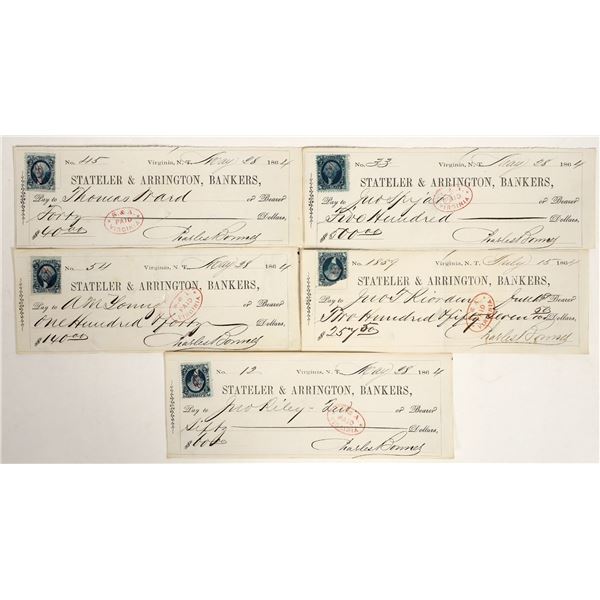 No. 45 Virginia, N. T. May 28 1864
STATELER & ARRINGTON, BANKERS,
Pay to Thomas Ward or Bearer
Forty Dollars,
$40.00 Charles Bonner
S. & A. PAID VIRGINIA
No. 33 Virginia, N. T. May 28 1864
STATELER & ARRINGTON, BANKERS,
Pay to Jno or Bearer
Five Hundred Dollars,
$500.00 Charles Bonner
PAID VIRGINIA
No. 54 Virginia, N. T. May 28 1864
STATELER & ARRINGTON, BANKERS,
Pay to A M or Bearer
One Hundred Forty Dollars,
$140.00 Charles Bonner
S. & A. PAID VIRGINIA
No. 1859 Virginia, N. T. July 15 1864
STATELER & ARRINGTON, BANKERS,
Pay to Jno T Riordan or Bearer
Two Hundred fifty seven 50/100 Dollars,
$257.50 Charles Bonner
PAID
No. 12 Virginia, N. T. May 28 1864
STATELER & ARRINGTON, BANKERS,
Pay to Jno Riley or Bearer
Dollars,
Charles Bonner
S & A PAID VIRGINIA